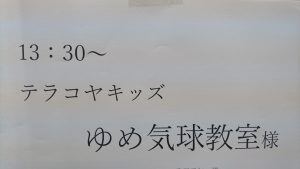 13：30～
テラコヤキッズ
ゆめ気球教室様